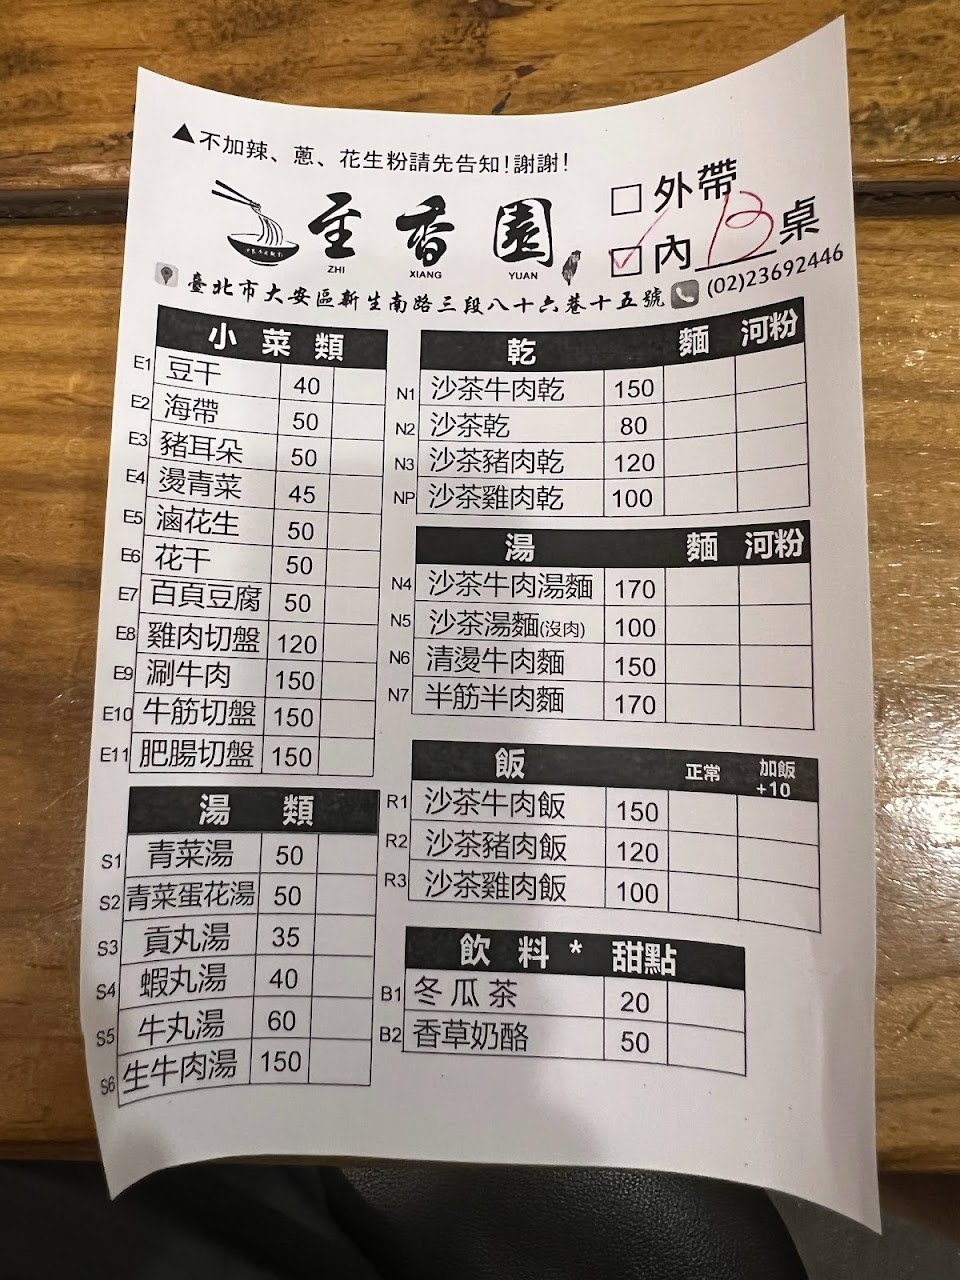 ▲不加辣、蔥、花生粉請先告知!謝謝!
至香園
ZHI XIANG YUAN
□外帶
□內 B 桌
臺北市大安區新生南路三段八十六巷十五號 (02)23692446
小菜類
E1 豆干 40
E2 海帶 50
E3 豬耳朵 50
E4 燙青菜 45
E5 滷花生 50
E6 花干 50
E7 百頁豆腐 50
E8 雞肉切盤 120
E9 涮牛肉 150
E10 牛筋切盤 150
E11 肥腸切盤 150
湯類
S1 青菜湯 50
S2 青菜蛋花湯 50
S3 貢丸湯 35
S4 蝦丸湯 40
S5 牛丸湯 60
S6 生牛肉湯 150
乾 麵 河粉
N1 沙茶牛肉乾 150
N2 沙茶乾 80
N3 沙茶豬肉乾 120
NP 沙茶雞肉乾 100
湯 麵 河粉
N4 沙茶牛肉湯麵 170
N5 沙茶湯麵(沒肉) 100
N6 清燙牛肉麵 150
N7 半筋半肉麵 170
飯 正常 加飯+10
R1 沙茶牛肉飯 150
R2 沙茶豬肉飯 120
R3 沙茶雞肉飯 100
飲料*甜點
B1 冬瓜茶 20
B2 香草奶酪 50